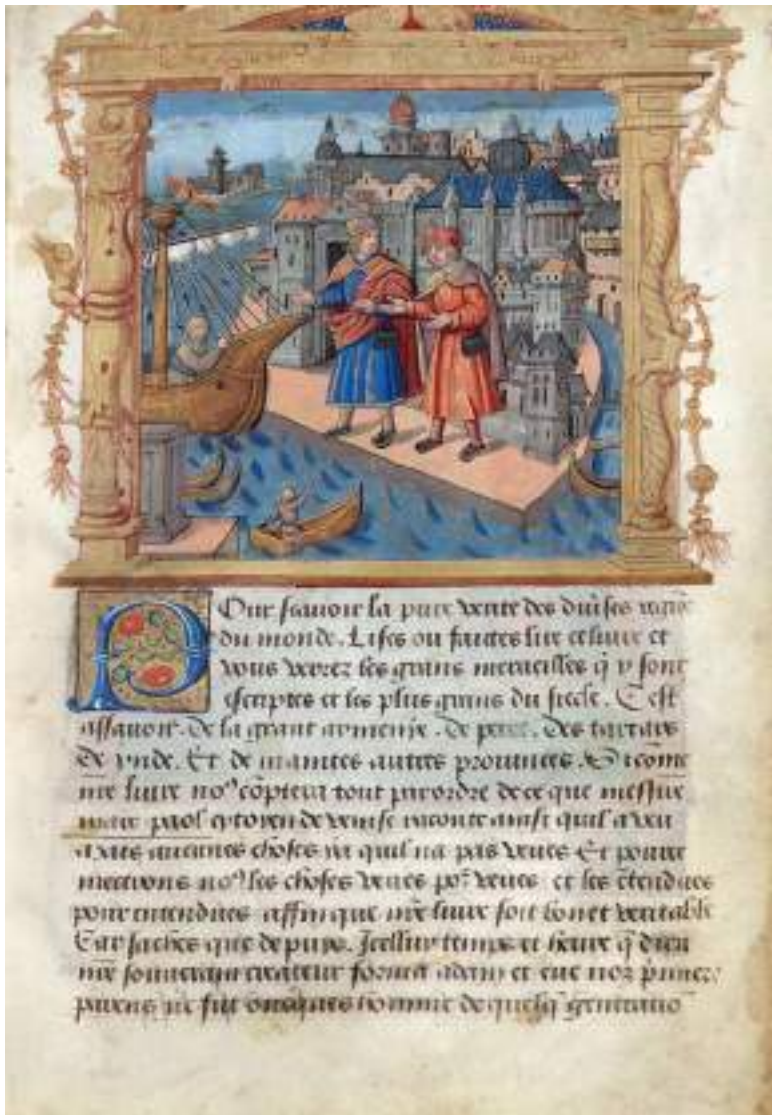 Pour scauoir la pure verite des diuises regiõs
du monde. Lises ou faictes lire ce liure et
vous verrez les grans merueilles q̃ y sont
escriptes et les plus grans du siecle. C est
assauoir. de la grant armenje. de perce. des tartars
de ynde. Et de maintes autres prouinces. Si cõme
nr̃e liure noꝰ cõptera tout par ordre de ce que messire
marc paol cytoyen de venise raconte ainsi quil a veu
aucunes choses quil na pas veues Et pource
mectrons noꝰ les choses veues poꝰ veues et les ẽtendues
pour entendues affin que nr̃e liure soit bon et veritable
Car saches que depuis Jcelluy temps et heure q̃ dieu
nr̃e souuerain createur forma adam et eue noz p̃miers
parens ne fut oncques homme de quelq̃ generatiõ